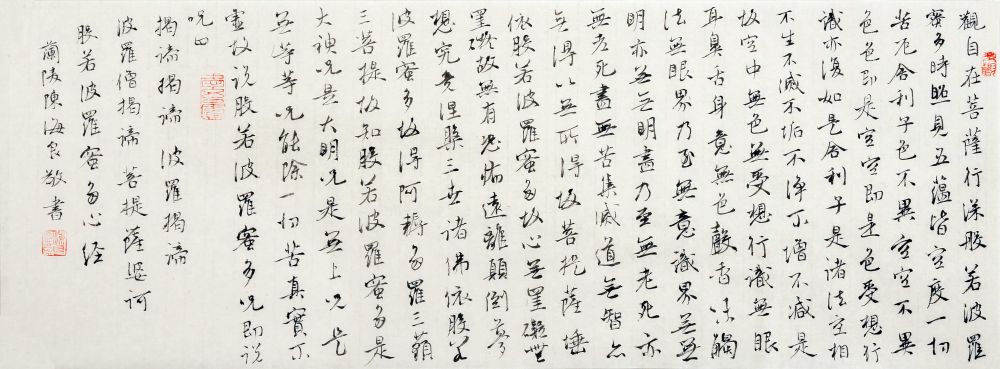 觀自在菩薩行深般若波羅
蜜多時照見五蘊皆空度一切
苦厄舍利子色不異空空不異
色色即是空空即是色受想行
識亦復如是舍利子是諸法空相
不生不滅不垢不淨不增不减是
故空中無色無受想行識無眼
耳鼻舌身意無色聲香味觸
法無眼界乃至無意識界无無
明亦无无明盡乃至無老死亦
無老死盡無苦集滅道无智亦
无得以無所得故菩提薩埵
依般若波羅蜜多故心无罣礙無
罣礙故無有恐怖遠離顛倒夢
想究竟涅槃三世諸佛依般若
波羅蜜多故得阿耨多羅三藐
三菩提故知般若波羅蜜多是
大神咒是大明咒是无上咒是
无等等咒能除一切苦真實不
虛故说般若波羅蜜多咒即说
咒曰
揭諦揭諦 波羅揭諦
波羅僧揭諦 菩提薩婆訶
般若波羅蜜多心经
蘭陵陳海良敬書